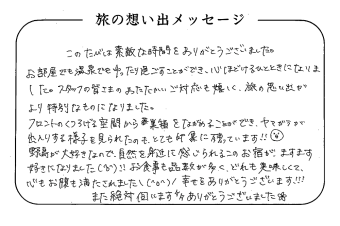 旅の想い出メッセージ
このたびは素敵な時間をありがとうございました。
お部屋でも温泉でもゆったり過ごすことができ、心ほどけるひとときになりま
した。スタッフの皆さまのあたたかいご対応も嬉しく、旅の思い出が
より特別なものになりました。
フロントのくつろげる空間から巣箱をながめることができ、ヤマガラが
出入りする様子を見られたのも、とても印象に残っています!!
野鳥が大好きなので、自然を身近に感じられるこのお宿が、ますます
好きになりました(^o^)! お食事も品数が多く、どれも美味しくて、
心もお腹も満たされました\(^o^)/ 幸せをありがとうございます!!!
また絶対伺います ありがとうございました